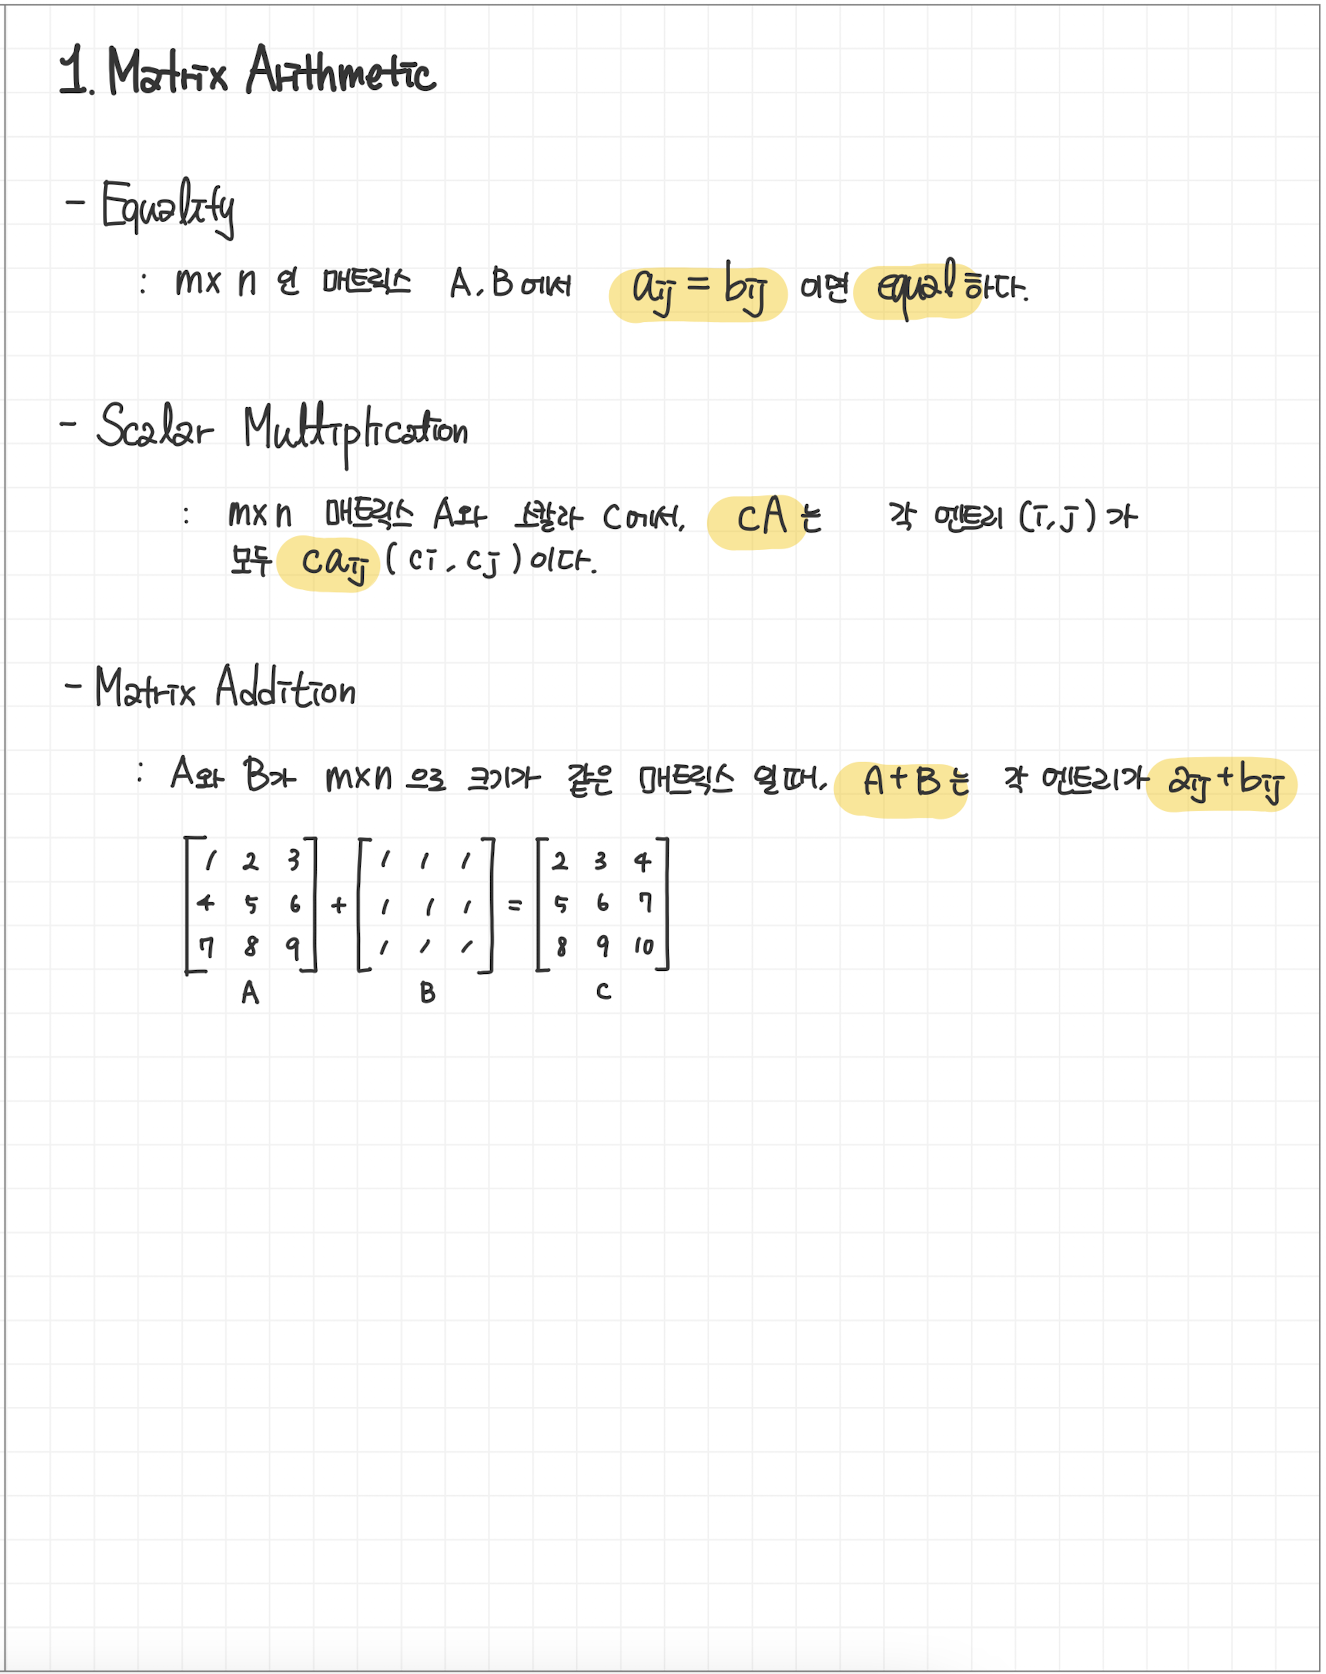 1. Matrix Arithmetic
- Equality
: m×n 인 매트릭스 A, B에서 aij = bij 이면 equal하다.
- Scalar Multiplication
: m×n 매트릭스 A와 스칼라 C에서, cA는 각 엔트리 (i, j) 가
모두 caij (ci, cj) 이다.
- Matrix Addition
: A와 B가 m×n 으로 크기가 같은 매트릭스 일 때, A+B는 각 엔트리가 aij + bij
1 2 3 1 1 1 2 3 4
4 5 6 + 1 1 1 = 5 6 7
7 8 9 1 1 1 8 9 10
A B C